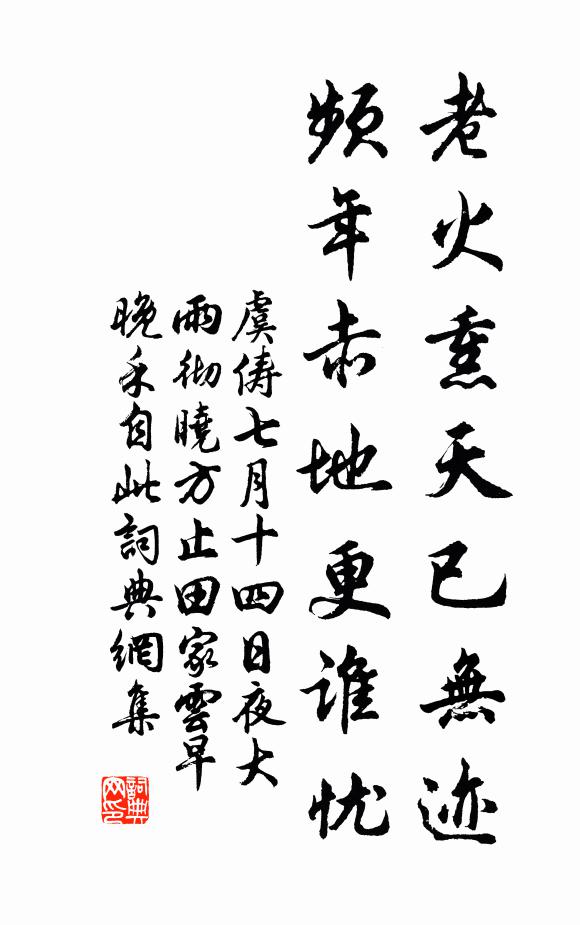 老火熏天已無迹
頻年赤地更谁忧
虞儔七月十四日夜大
雨彻曉方止田家雲早
晚禾自此詞典網集
詞典
网印